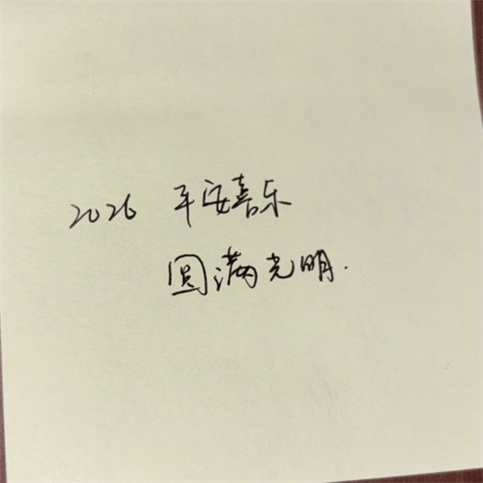 2026 平安喜乐
圆满光明.